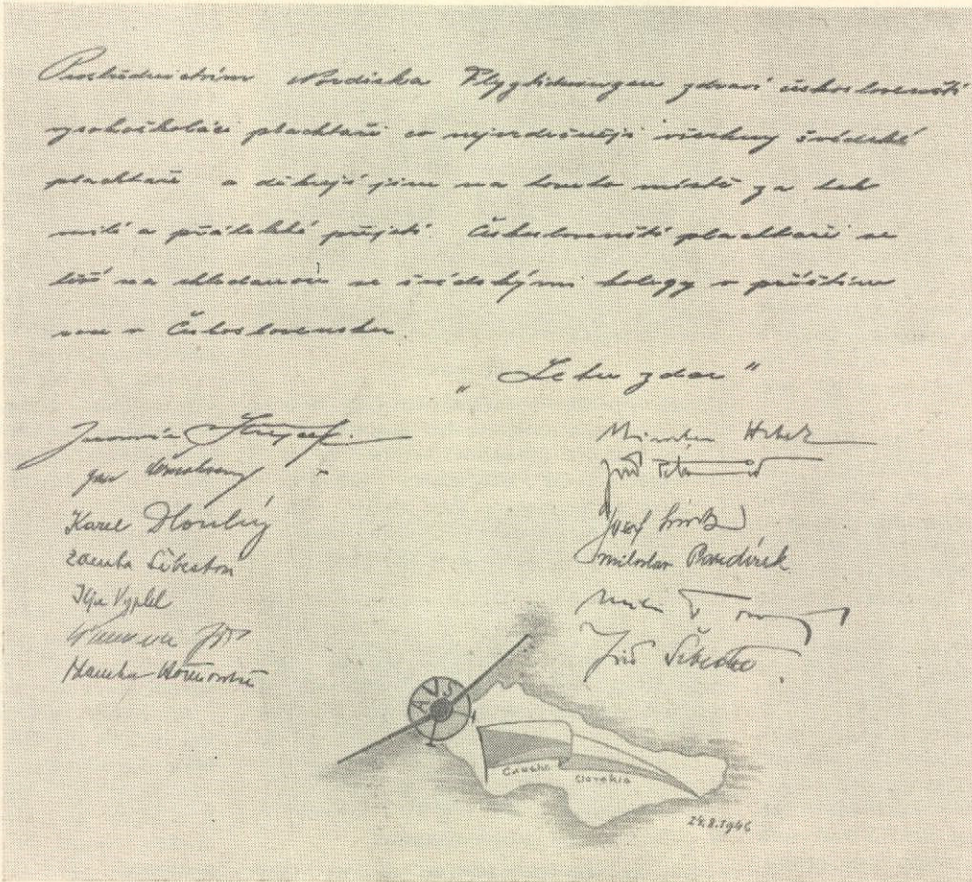 Prostřednictvím Nordiska Flygtidningen zdraví českoslovenští
vysokoškoláci plachtaři co nejsrdečněji všechny švédské
plachtaře a děkují jim na tomto místě za tak
milé a přátelské přijetí. Českoslovenští plachtaři se
těší na shledanou se švédskými kolegy v příštím
roce v Československu.
„Letu zdar"
Karel Dlouhý
Zdenka Šebestová
Ilja Vyplel
Hanka
Miroslav
Jiří
Josef
Miloslav Bandírek
Jiří Šebesta
AVS
Czecho Slovakia
24.8.1946